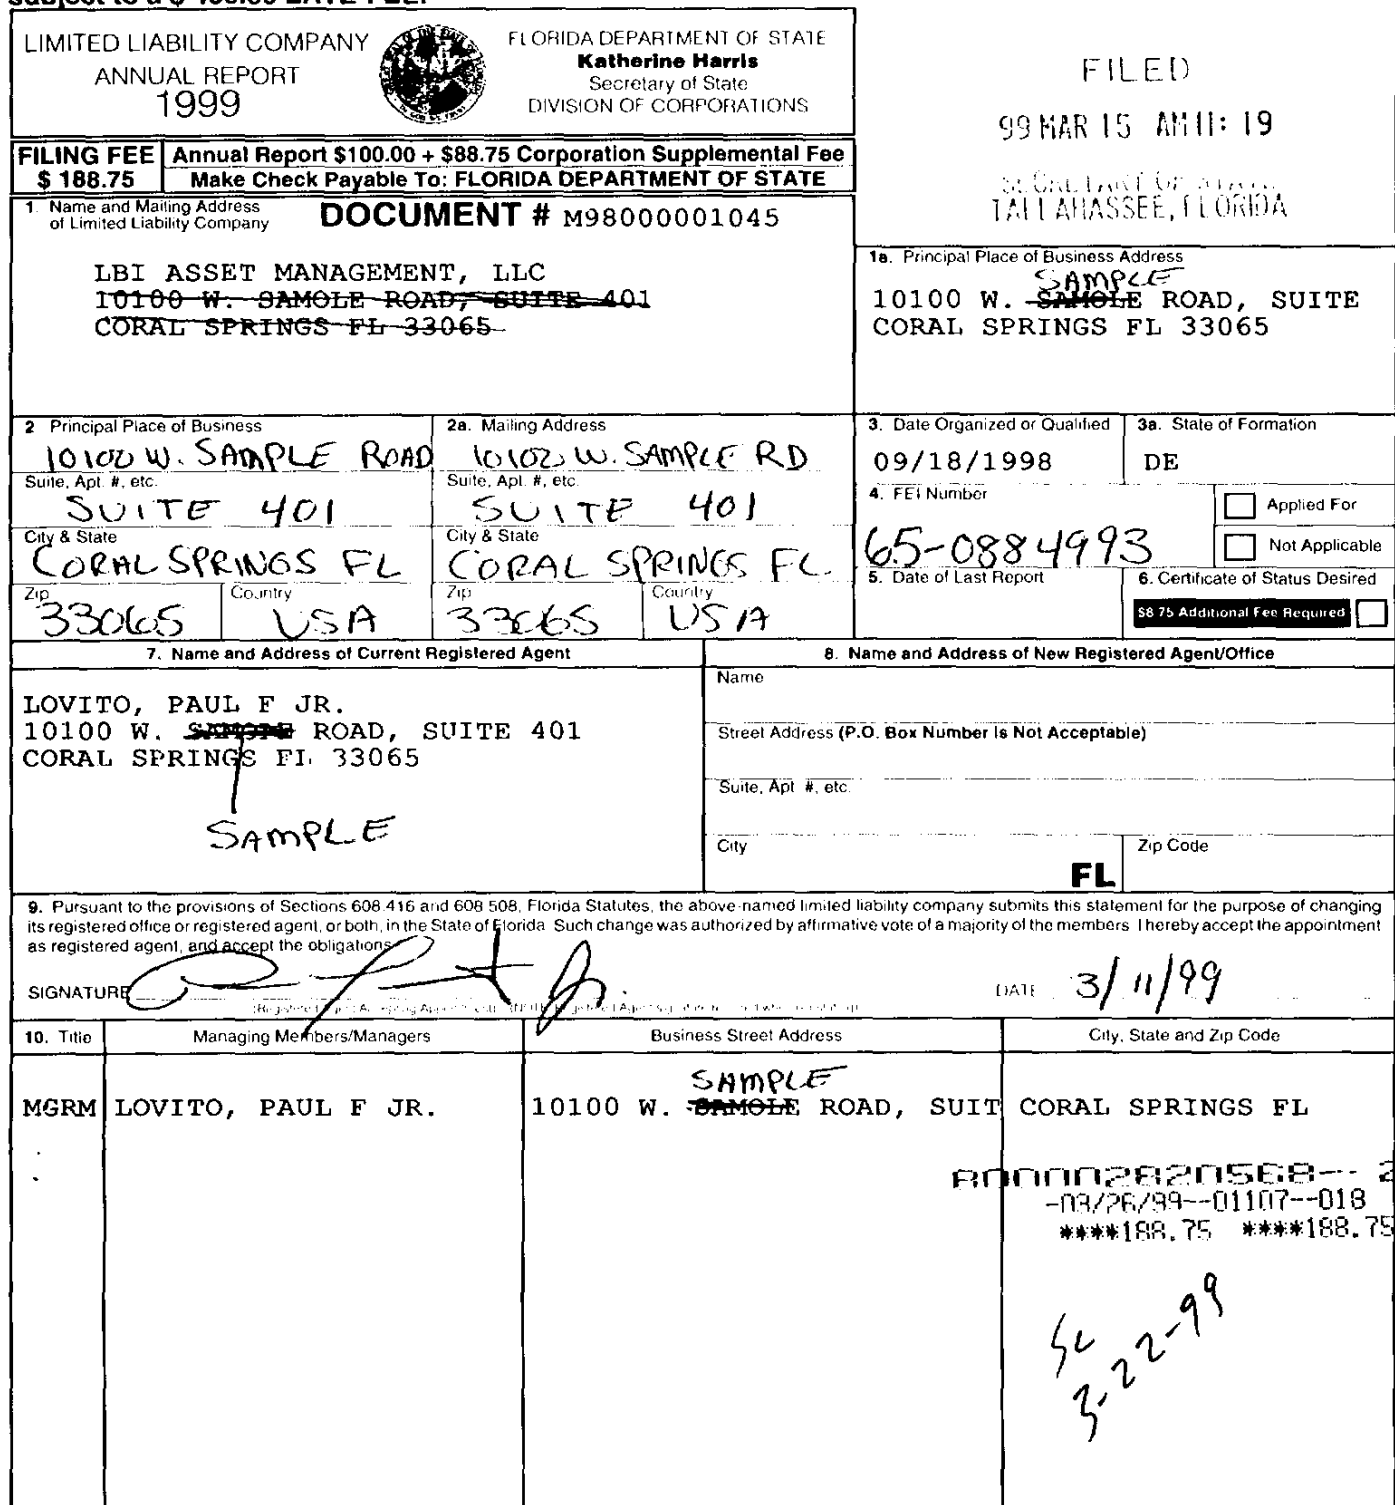 LIMITED LIABILITY COMPANY
ANNUAL REPORT
1999
FLORIDA DEPARTMENT OF STATE
Katherine Harris
Secretary of State
DIVISION OF CORPORATIONS
FILED
99 MAR 15 AM 11: 19
SECRETARY OF STATE
TALLAHASSEE, FLORIDA
FILING FEE
$ 188.75
Annual Report $100.00 + $88.75 Corporation Supplemental Fee
Make Check Payable To: FLORIDA DEPARTMENT OF STATE
1. Name and Mailing Address
of Limited Liability Company
DOCUMENT # M98000001045
LBI ASSET MANAGEMENT, LLC
10100 W. SAMOLE ROAD, SUITE 401
CORAL SPRINGS FL 33065
1a. Principal Place of Business Address
SAMPLE
10100 W. SAMOLE ROAD, SUITE
CORAL SPRINGS FL 33065
2 Principal Place of Business
10100 W. SAMPLE ROAD
Suite, Apt. #, etc.
SUITE 401
City & State
CORAL SPRINGS FL
Zip
33065
Country
USA
2a. Mailing Address
10100 W. SAMPLE RD
Suite, Apt. #, etc.
SUITE 401
City & State
CORAL SPRINGS FL.
Zip
33065
Country
USA
3. Date Organized or Qualified
09/18/1998
3a. State of Formation
DE
4. FEI Number
65-0884993
Applied For
Not Applicable
5. Date of Last Report
6. Certificate of Status Desired
$8.75 Additional Fee Required
7. Name and Address of Current Registered Agent
LOVITO, PAUL F JR.
10100 W. SAMOLE ROAD, SUITE 401
CORAL SPRINGS FL 33065
SAMPLE
8. Name and Address of New Registered Agent/Office
Name
Street Address (P.O. Box Number Is Not Acceptable)
Suite, Apt. #, etc.
City
FL
Zip Code
9. Pursuant to the provisions of Sections 608.416 and 608.508, Florida Statutes, the above-named limited liability company submits this statement for the purpose of changing
its registered office or registered agent, or both, in the State of Florida. Such change was authorized by affirmative vote of a majority of the members. I hereby accept the appointment
as registered agent, and accept the obligations
SIGNATURE
DATE 3/11/99
10. Title
Managing Members/Managers
Business Street Address
City, State and Zip Code
SAMPLE
MGRM LOVITO, PAUL F JR. 10100 W. SAMOLE ROAD, SUIT CORAL SPRINGS FL
800002820568--2
-03/26/99--01107--018
****188.75 ****188.75
SC
3-22-99